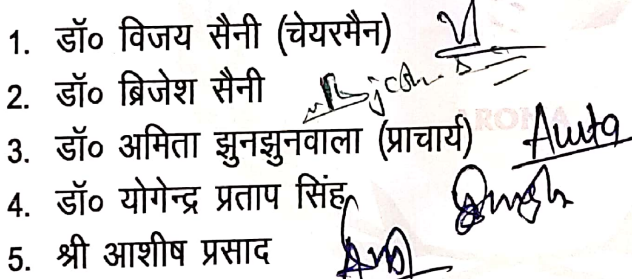 1. डॉ० विजय सैनी (चेयरमैन)
2. डॉ० ब्रिजेश सैनी
3. डॉ० अमिता झुनझुनवाला (प्राचार्य) Amita
4. डॉ० योगेन्द्र प्रताप सिंह
5. श्री आशीष प्रसाद